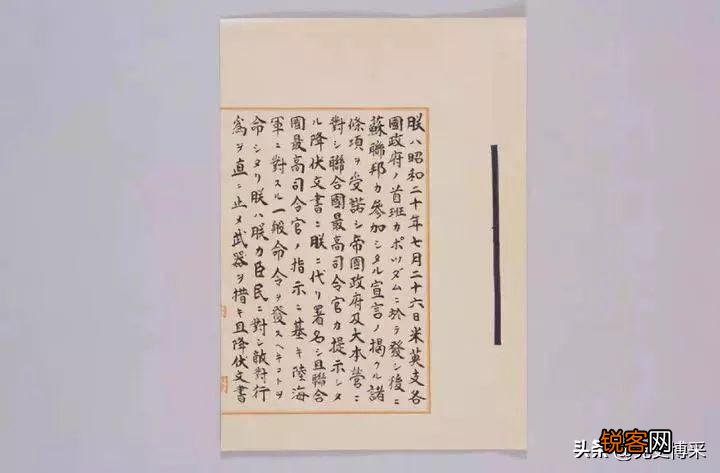 朕ハ昭和二十年七月二十六日米英支各
國政府ノ首班カポツダムニ於テ發シ後ニ
蘇聯邦カ參加シタル宣言ノ掲クル諸
條項ヲ受諾シ帝國政府及大本營ニ
對シ聯合國最高司令官カ提示シタ
ル降伏文書ニ朕ニ代リ署名シ且聯合
國最高司令官ノ指示ニ基キ陸海
軍ニ對スル一般命令ヲ發スヘキコトヲ
命シタリ朕ハ朕カ臣民ニ對シ敵對行
為ヲ直ニ止メ武器ヲ措キ且降伏文書
锐客网
头条 博采